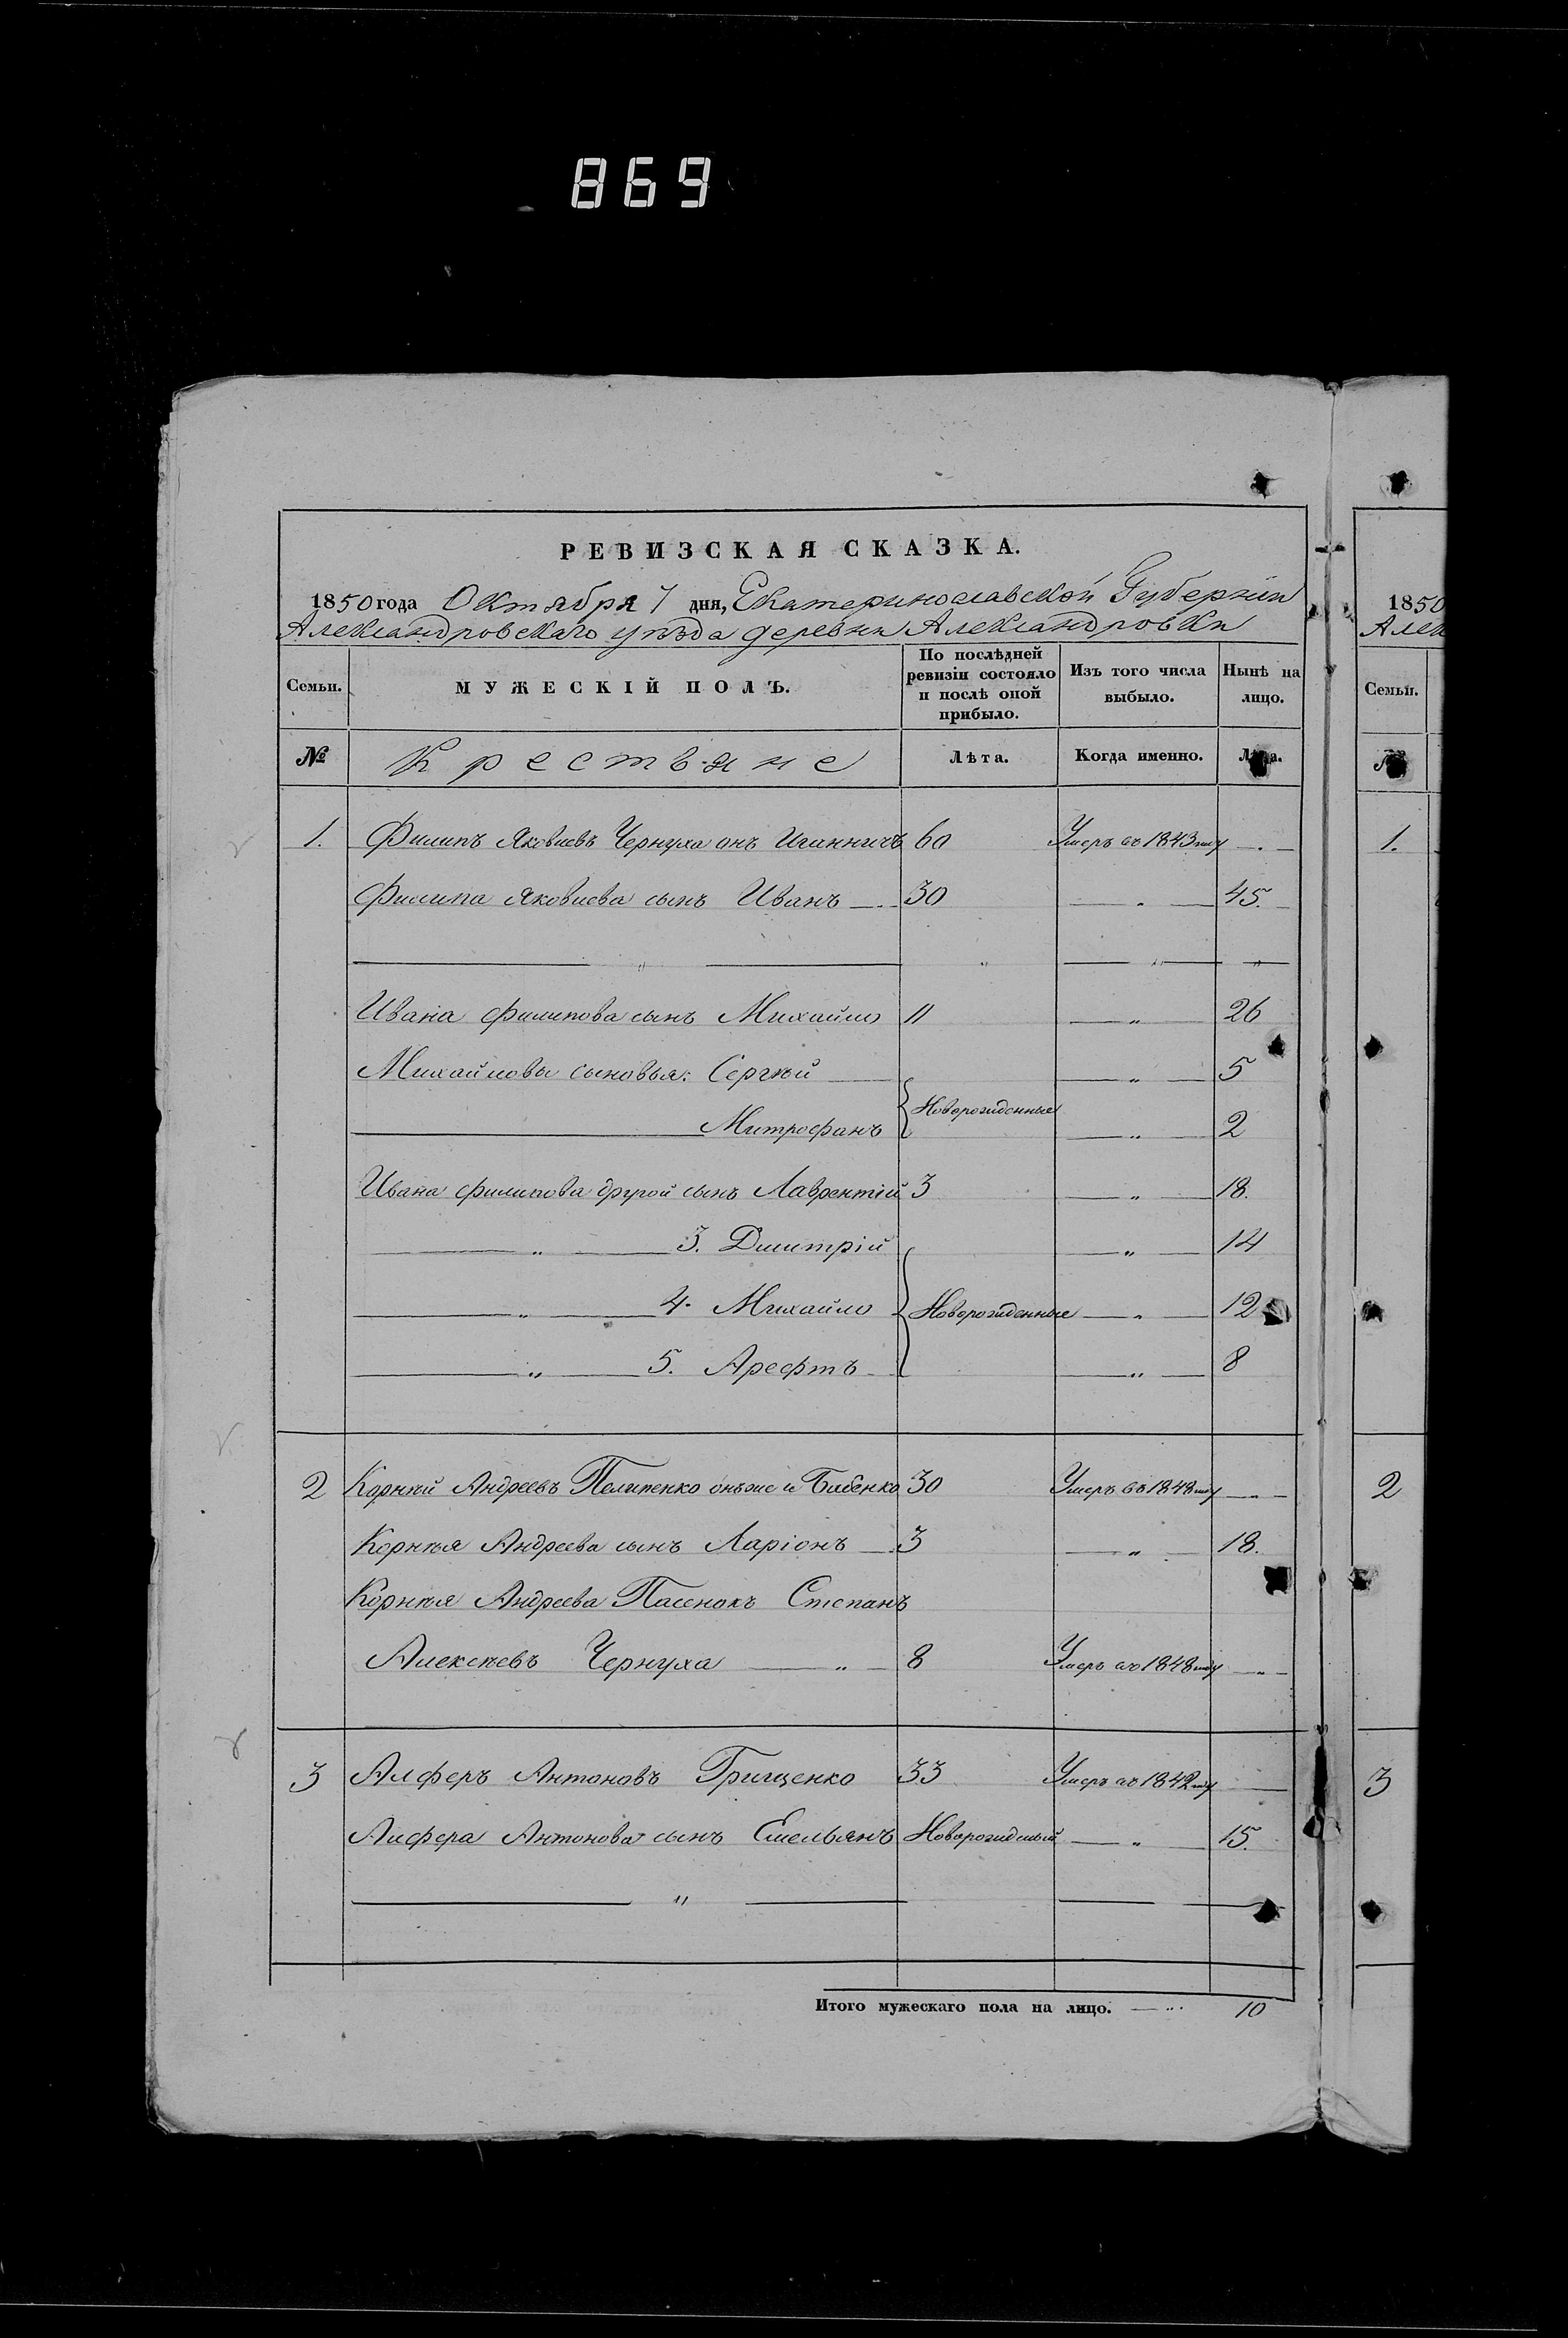 869
РЕВИЗСКАЯ СКАЗКА.
1850 года Октября 7 дня, Екатеринославской Губерніи
Александровскаго уѣзда деревни Александровки
Семьи. МУЖЕСКІЙ ПОЛЪ. По послѣдней ревизіи состояло и послѣ оной прибыло. Изъ того числа выбыло. Нынѣ на лицо.
№ Крестьяне Лѣта. Когда именно. Лѣта.
1. Филипъ Яковлевъ Чернуха онъ 60 Умеръ въ 1843 году —.—
Филипа Яковлева сынъ Иванъ —. 30 — „ — 45.
— „ — „ — „ — „
Ивана Филипова сынъ Михайло 11 — „ — 26
Михайловы сыновья: Сергѣй — „ — 5
Новорожденные
Митрофанъ — „ — 2
Ивана Филипова другой сынъ Лаврентій 3 — „ — 18.
— „ — 3. Дмитрій — „ — 14
— „ — 4. Михайло Новорожденные — „ — 12
— „ — 5. Арефтъ — „ — 8
2 Корнѣй Андреевъ Пелипенко онъже и Бабенко 30 Умеръ въ 1848 году — „ —
Корнѣя Андреева сынъ Ларіонъ — 3 — „ — 18.
Корнѣя Андреева Пасенокъ Степанъ
Алексѣевъ Чернуха — „ — 8 Умеръ въ 1848 году — „ —
3 Алферъ Антоновъ Грищенко 33 Умеръ въ 1842 году —
Алфера Антонова сынъ Емельянъ Новорожденый — „ — 15.
— „ —
Итого мужескаго пола на лицо. — „ 10
1850
Алек
Семьи.
№
1.
2
3